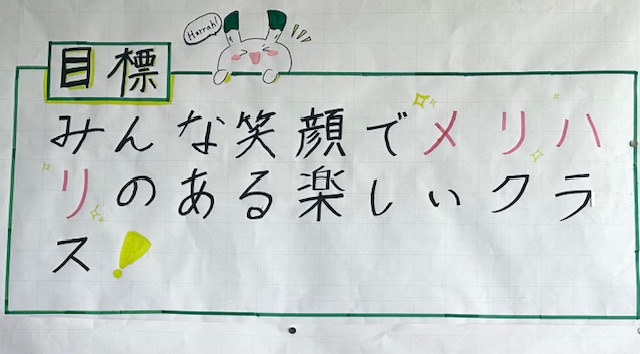 Hurrah!
目標
みんな笑顔でメリハ
リのある楽しいクラ
ス!